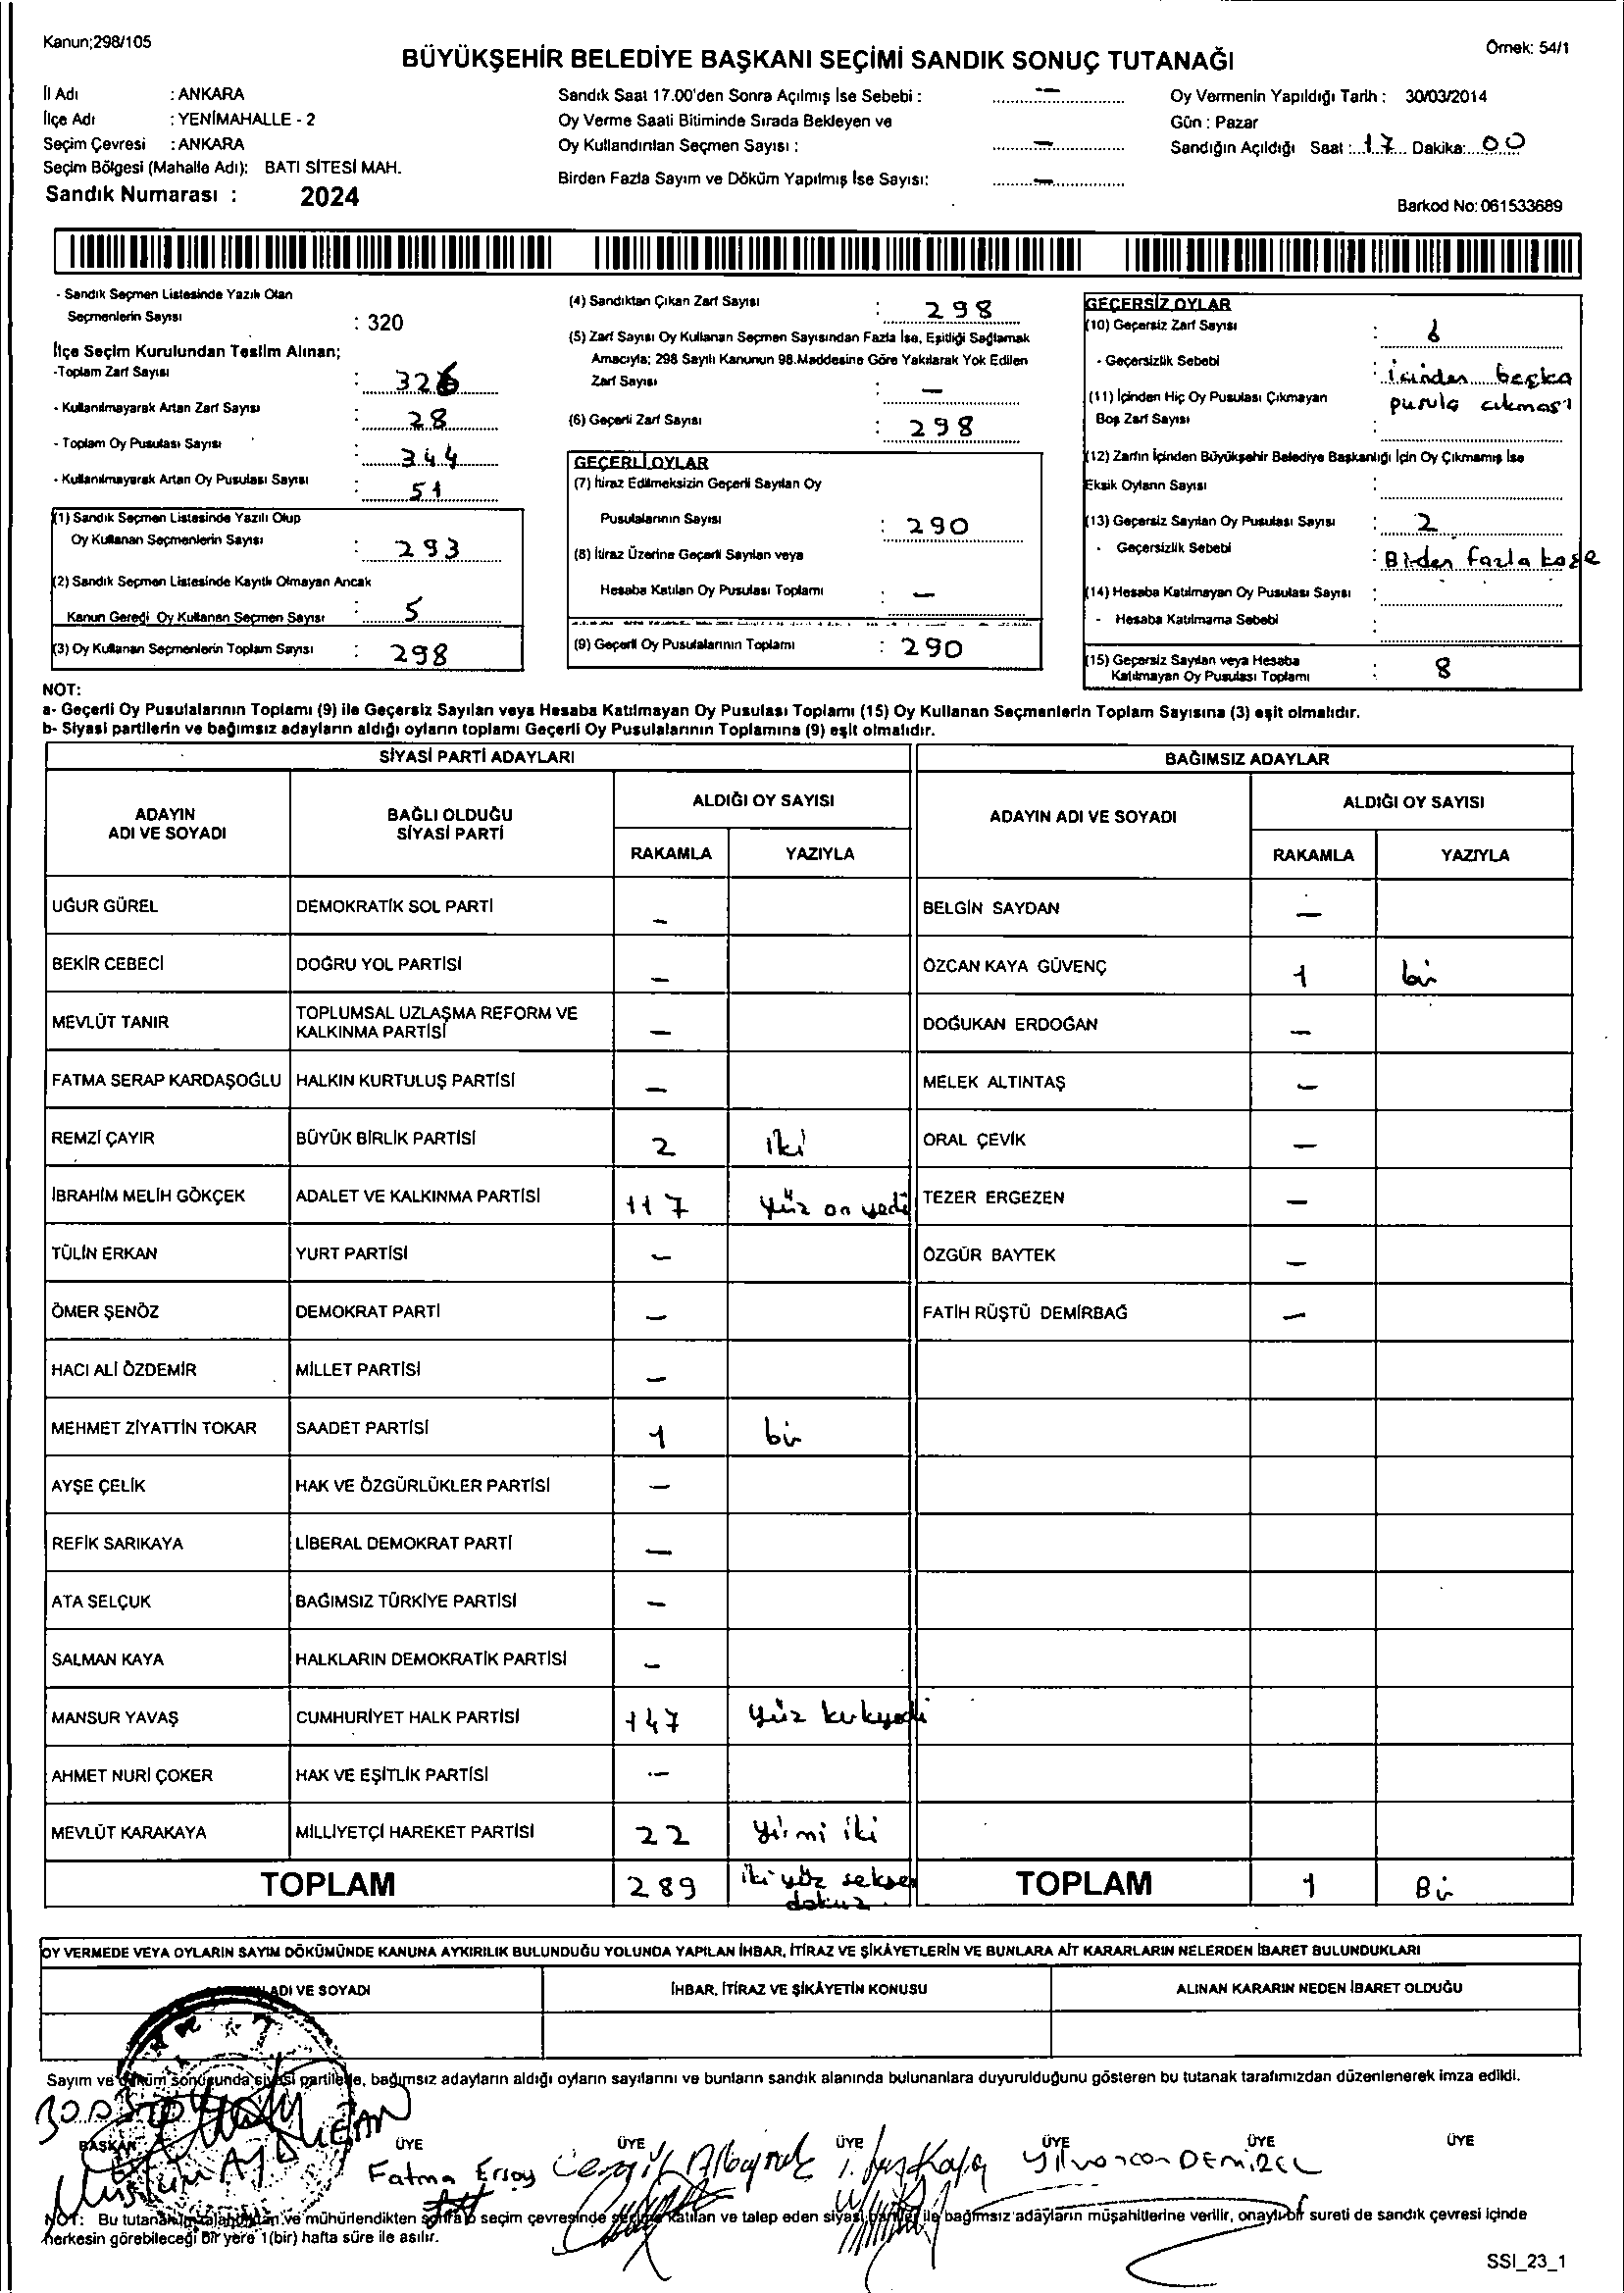 Kanun;298/105
Örnek: 54/1
BÜYÜKŞEHİR BELEDİYE BAŞKANI SEÇİMİ SANDIK SONUÇ TUTANAĞI
İl Adı : ANKARA
İlçe Adı : YENİMAHALLE - 2
Seçim Çevresi : ANKARA
Seçim Bölgesi (Mahalle Adı): BATI SİTESİ MAH.
Sandık Numarası : 2024
Sandık Saat 17.00'den Sonra Açılmış İse Sebebi : —
Oy Verme Saati Bitiminde Sırada Bekleyen ve
Oy Kullandırılan Seçmen Sayısı : —
Birden Fazla Sayım ve Döküm Yapılmış İse Sayısı: —
Oy Vermenin Yapıldığı Tarih : 30/03/2014
Gün : Pazar
Sandığın Açıldığı Saat : 17 Dakika: 00
Barkod No: 061533689
- Sandık Seçmen Listesinde Yazılı Olan
Seçmenlerin Sayısı : 320
İlçe Seçim Kurulundan Teslim Alınan;
-Toplam Zarf Sayısı : 326
- Kullanılmayarak Artan Zarf Sayısı : 28
- Toplam Oy Pusulası Sayısı : 344
- Kullanılmayarak Artan Oy Pusulası Sayısı : 51
(1) Sandık Seçmen Listesinde Yazılı Olup
Oy Kullanan Seçmenlerin Sayısı : 293
(2) Sandık Seçmen Listesinde Kayıtlı Olmayan Ancak
Kanun Gereği Oy Kullanan Seçmen Sayısı : 5
(3) Oy Kullanan Seçmenlerin Toplam Sayısı : 298
(4) Sandıktan Çıkan Zarf Sayısı : 298
(5) Zarf Sayısı Oy Kullanan Seçmen Sayısından Fazla İse, Eşitliği Sağlamak
Amacıyla; 298 Sayılı Kanunun 98.Maddesine Göre Yakılarak Yok Edilen
Zarf Sayısı : —
(6) Geçerli Zarf Sayısı : 298
GEÇERLİ OYLAR
(7) İtiraz Edilmeksizin Geçerli Sayılan Oy
Pusulalarının Sayısı : 290
(8) İtiraz Üzerine Geçerli Sayılan veya
Hesaba Katılan Oy Pusulası Toplamı : —
(9) Geçerli Oy Pusulalarının Toplamı : 290
GEÇERSİZ OYLAR
(10) Geçersiz Zarf Sayısı : 6
- Geçersizlik Sebebi : içinden başka
pusula çıkması
(11) İçinden Hiç Oy Pusulası Çıkmayan
Boş Zarf Sayısı :
(12) Zarfın İçinden Büyükşehir Belediye Başkanlığı İçin Oy Çıkmamış İse
Eksik Oyların Sayısı :
(13) Geçersiz Sayılan Oy Pusulası Sayısı : 2
- Geçersizlik Sebebi : Birden fazla kaşe
(14) Hesaba Katılmayan Oy Pusulası Sayısı :
- Hesaba Katılmama Sebebi :
(15) Geçersiz Sayılan veya Hesaba
Katılmayan Oy Pusulası Toplamı : 8
NOT:
a- Geçerli Oy Pusulalarının Toplamı (9) ile Geçersiz Sayılan veya Hesaba Katılmayan Oy Pusulası Toplamı (15) Oy Kullanan Seçmenlerin Toplam Sayısına (3) eşit olmalıdır.
b- Siyasi partilerin ve bağımsız adayların aldığı oyların toplamı Geçerli Oy Pusulalarının Toplamına (9) eşit olmalıdır.
SİYASİ PARTİ ADAYLARI BAĞIMSIZ ADAYLAR
ADAYIN ADI VE SOYADI BAĞLI OLDUĞU SİYASİ PARTİ ALDIĞI OY SAYISI ADAYIN ADI VE SOYADI ALDIĞI OY SAYISI
RAKAMLA YAZIYLA RAKAMLA YAZIYLA
UĞUR GÜREL DEMOKRATİK SOL PARTİ — BELGİN SAYDAN —
BEKİR CEBECİ DOĞRU YOL PARTİSİ — ÖZCAN KAYA GÜVENÇ 1 bir
MEVLÜT TANIR TOPLUMSAL UZLAŞMA REFORM VE KALKINMA PARTİSİ — DOĞUKAN ERDOĞAN —
FATMA SERAP KARDAŞOĞLU HALKIN KURTULUŞ PARTİSİ — MELEK ALTINTAŞ —
REMZİ ÇAYIR BÜYÜK BİRLİK PARTİSİ 2 iki ORAL ÇEVİK —
İBRAHİM MELİH GÖKÇEK ADALET VE KALKINMA PARTİSİ 117 yüz on yedi TEZER ERGEZEN —
TÜLİN ERKAN YURT PARTİSİ — ÖZGÜR BAYTEK —
ÖMER ŞENÖZ DEMOKRAT PARTİ — FATİH RÜŞTÜ DEMİRBAĞ —
HACI ALİ ÖZDEMİR MİLLET PARTİSİ —
MEHMET ZİYATTİN TOKAR SAADET PARTİSİ 1 bir
AYŞE ÇELİK HAK VE ÖZGÜRLÜKLER PARTİSİ —
REFİK SARIKAYA LİBERAL DEMOKRAT PARTİ —
ATA SELÇUK BAĞIMSIZ TÜRKİYE PARTİSİ —
SALMAN KAYA HALKLARIN DEMOKRATİK PARTİSİ —
MANSUR YAVAŞ CUMHURİYET HALK PARTİSİ 147 yüz kırkyedi
AHMET NURİ ÇOKER HAK VE EŞİTLİK PARTİSİ —
MEVLÜT KARAKAYA MİLLİYETÇİ HAREKET PARTİSİ 22 yirmi iki
TOPLAM 289 iki yüz seksen dokuz TOPLAM 1 Bir
OY VERMEDE VEYA OYLARIN SAYIM DÖKÜMÜNDE KANUNA AYKIRILIK BULUNDUĞU YOLUNDA YAPILAN İHBAR, İTİRAZ VE ŞİKÂYETLERİN VE BUNLARA AİT KARARLARIN NELERDEN İBARET BULUNDUKLARI
ADI VE SOYADI İHBAR, İTİRAZ VE ŞİKÂYETİN KONUSU ALINAN KARARIN NEDEN İBARET OLDUĞU
Sayım ve döküm sonucunda siyasi partilerle, bağımsız adayların aldığı oyların sayılarını ve bunların sandık alanında bulunanlara duyurulduğunu gösteren bu tutanak tarafımızdan düzenlenerek imza edildi.
BAŞKAN ÜYE ÜYE ÜYE ÜYE ÜYE ÜYE
Fatma Ersoy Cengiz Albayrak DEMİREL
NOT: Bu tutanak imzalandıktan ve mühürlendikten sonra o seçim çevresinde seçime katılan ve talep eden siyasi partiler ile bağımsız adayların müşahitlerine verilir, onaylı bir sureti de sandık çevresi içinde
herkesin görebileceği bir yere 1(bir) hafta süre ile asılır.
SSI_23_1